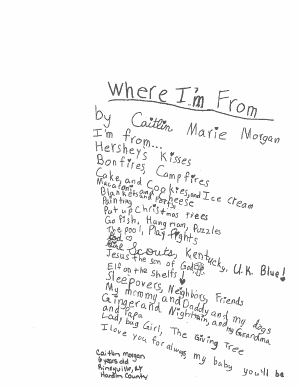 Where I'm From
by Caitlin Marie Morgan
I'm from...
Hershey's Kisses
Bonfires, Campfires
Cake, and Cookies, and Ice cream
Macaroni and
Blankets and Forts
Painting
Put up Christmas trees
Go fish, Hang man, Puzzles
The pool, Play Fights
Scouts, Kentucky, U.K. Blue!
Jesus the son of God
Elf on the shelfs
Sleepovers, Neighbors, Friends
My mommy and Daddy and my dogs
Ginger and Nightmin, and my Grandma
and Papa
Lady bug Girl, The Giving Tree
I love you for always, my baby you'll be
Caitlin Morgan
years old
Rineyville, KY
Hardin County